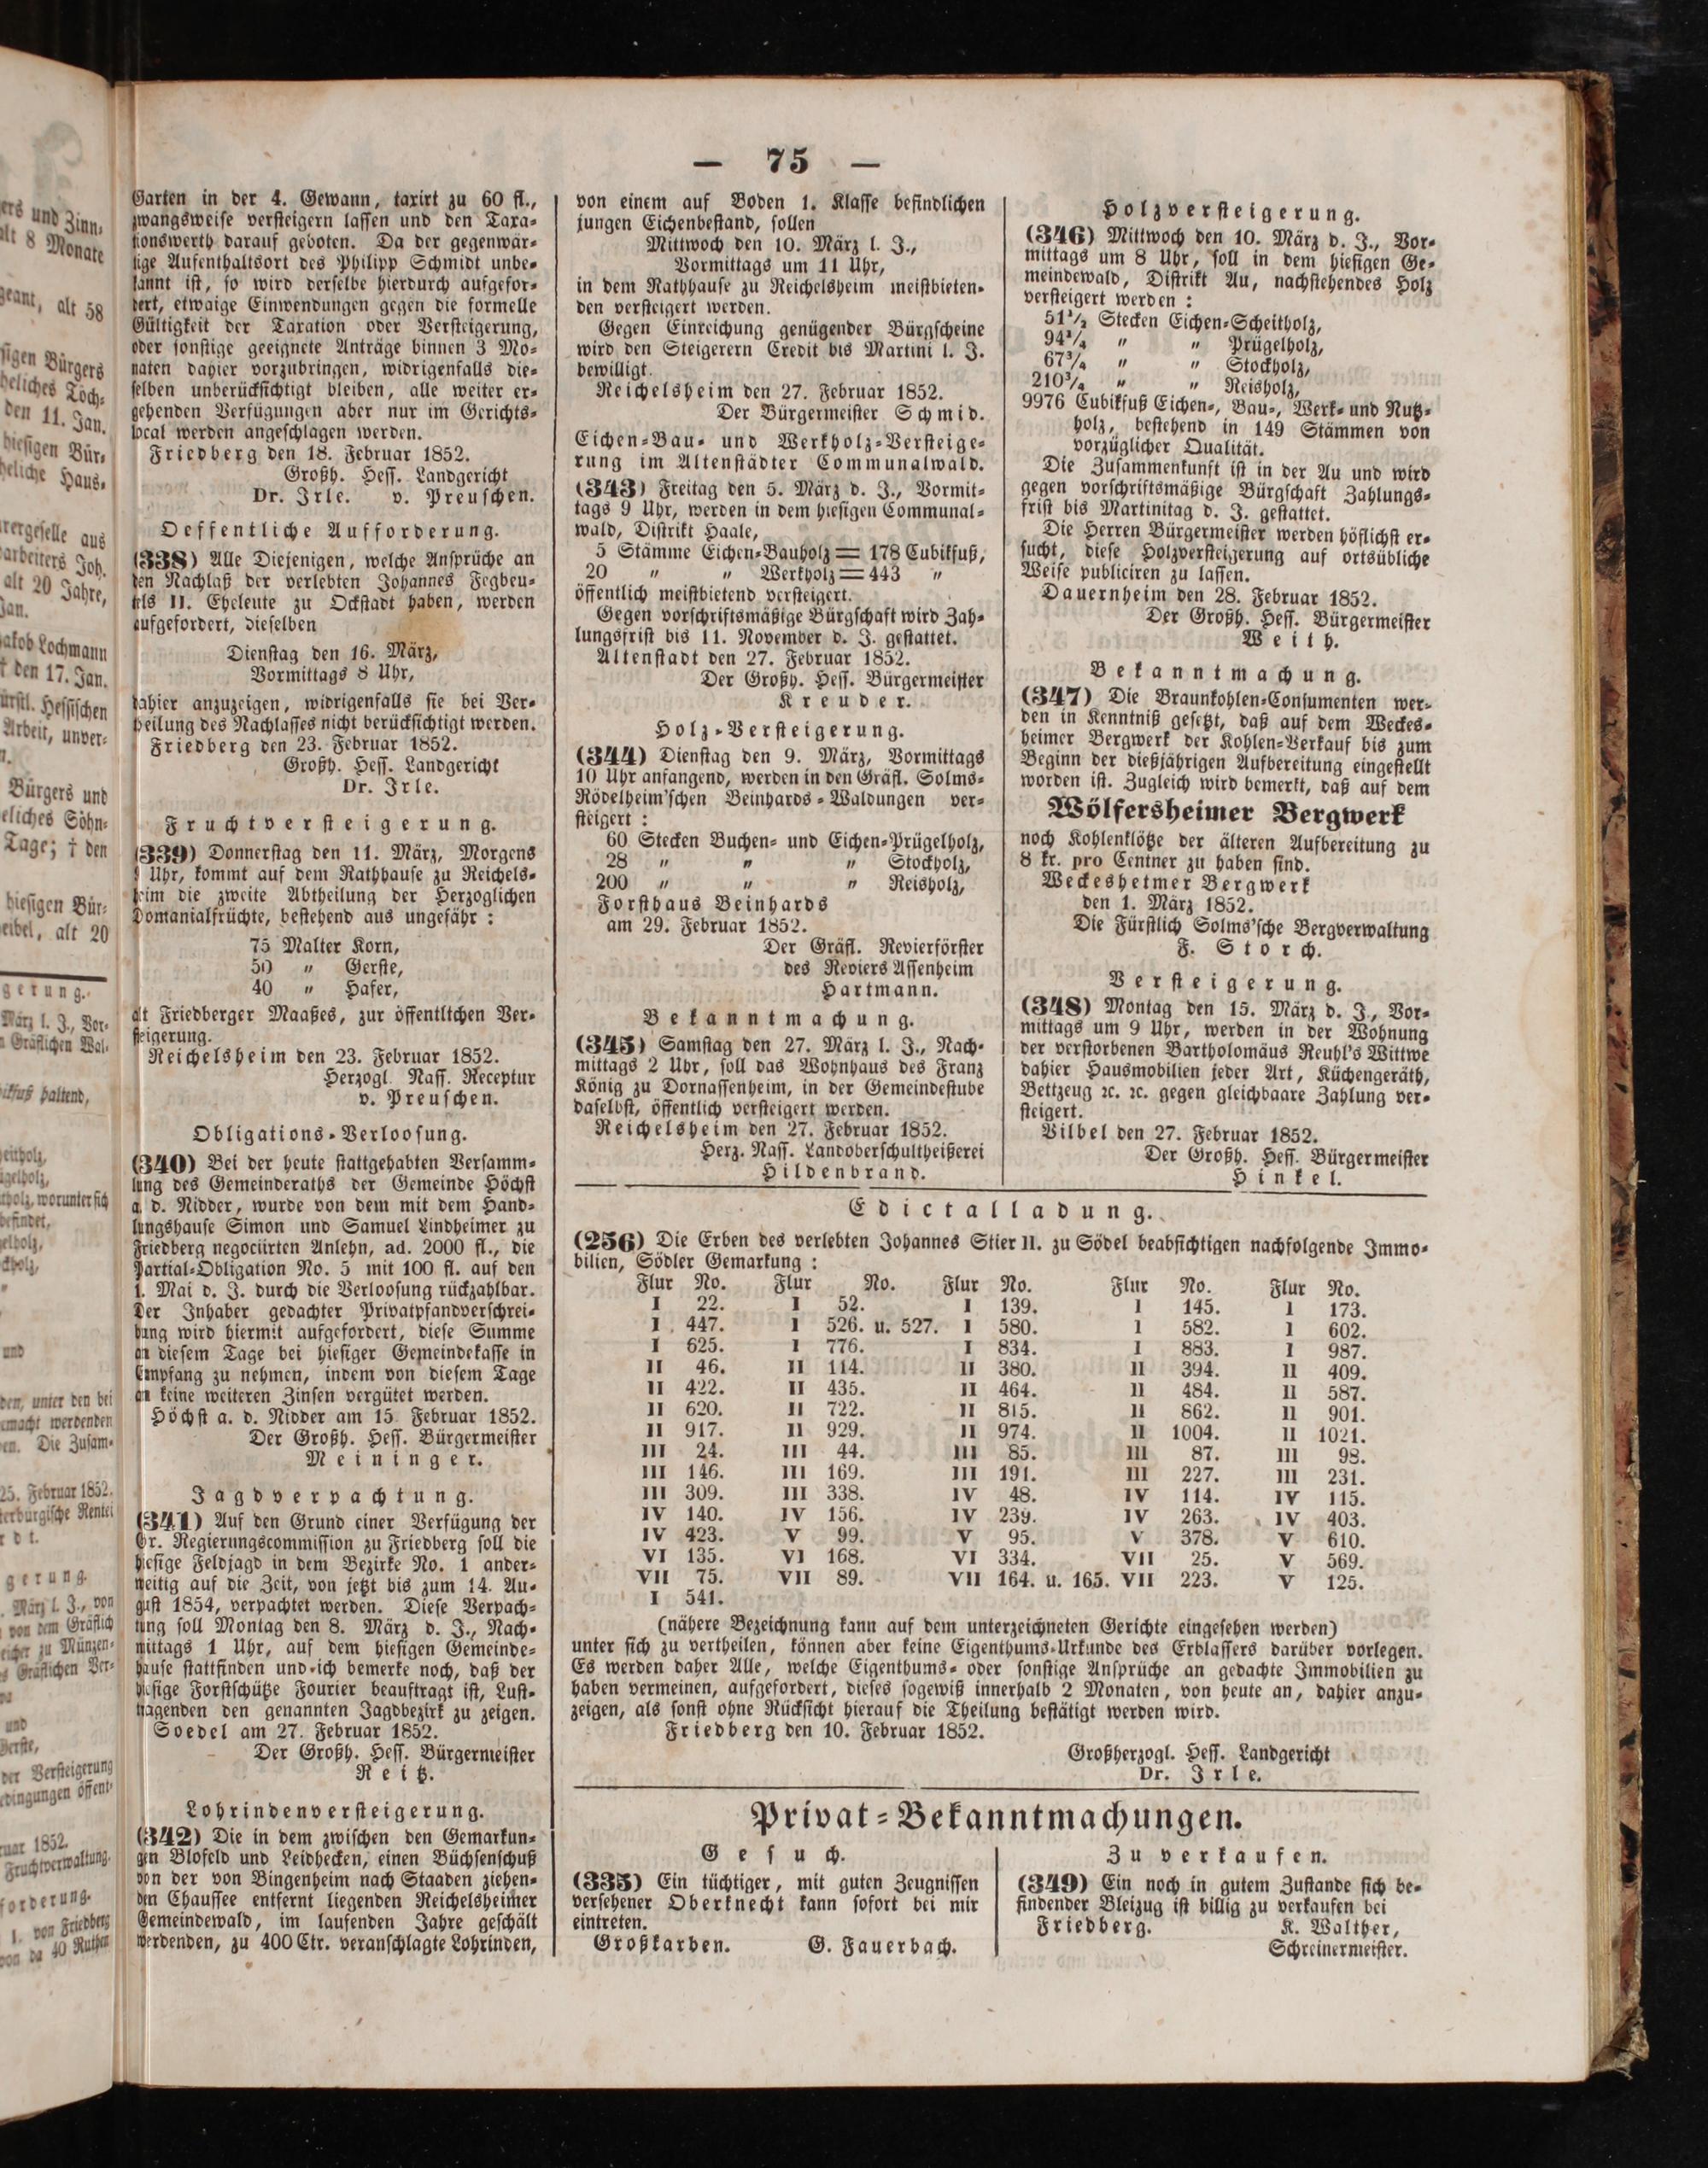 — 75 —
Garten in der 4. Gewann, taxirt zu 60 fl.,
zwangsweise versteigern lassen und den Taxa-
tionswerth darauf geboten. Da der gegenwär-
tige Aufenthaltsort des Philipp Schmidt unbe-
kannt ist, so wird derselbe hierdurch aufgefor-
dert, etwaige Einwendungen gegen die formelle
Gültigkeit der Taxation oder Versteigerung,
oder sonstige geeignete Anträge binnen 3 Mo-
naten dahier vorzubringen, widrigenfalls die-
selben unberücksichtigt bleiben, alle weiter er-
gehenden Verfügungen aber nur im Gerichts-
local werden angeschlagen werden.
Friedberg den 18. Februar 1852.
Großh. Hess. Landgericht
Dr. Irle. v. Preuschen.
Oeffentliche Aufforderung.
(338) Alle Diejenigen, welche Ansprüche an
den Nachlaß der verlebten Johannes Fegbeu-
tels II. Eheleute zu Ockstadt haben, werden
aufgefordert, dieselben
Dienstag den 16. März,
Vormittags 8 Uhr,
dahier anzuzeigen, widrigenfalls sie bei Ver-
theilung des Nachlasses nicht berücksichtigt werden.
Friedberg den 23. Februar 1852.
Großh. Hess. Landgericht
Dr. Irle.
Fruchtversteigerung.
(339) Donnerstag den 11. März, Morgens
Uhr, kommt auf dem Rathhause zu Reichels-
heim die zweite Abtheilung der Herzoglichen
Domanialfrüchte, bestehend aus ungefähr:
75 Malter Korn,
50 " Gerste,
40 " Hafer,
alt Friedberger Maaßes, zur öffentlichen Ver-
steigerung.
Reichelsheim den 23. Februar 1852.
Herzogl. Nass. Receptur
v. Preuschen.
Obligations-Verloosung.
(340) Bei der heute stattgehabten Versamm-
lung des Gemeinderaths der Gemeinde Höchst
a. d. Nidder, wurde von dem mit dem Hand-
lungshause Simon und Samuel Lindheimer zu
Friedberg negociirten Anlehn, ad. 2000 fl., die
Partial-Obligation No. 5 mit 100 fl. auf den
1. Mai d. J. durch die Verloosung rückzahlbar.
Der Inhaber gedachter Privatpfandverschrei-
bung wird hiermit aufgefordert, diese Summe
an diesem Tage bei hiesiger Gemeindekasse in
Empfang zu nehmen, indem von diesem Tage
an keine weiteren Zinsen vergütet werden.
Höchst a. d. Nidder am 15. Februar 1852.
Der Großh. Hess. Bürgermeister
Meininger.
Jagdverpachtung.
(341) Auf den Grund einer Verfügung der
Gr. Regierungscommission zu Friedberg soll die
hiesige Feldjagd in dem Bezirke No. 1 ander-
weitig auf die Zeit, von jetzt bis zum 14. Au-
gust 1854, verpachtet werden. Diese Verpach-
tung soll Montag den 8. März d. J., Nach-
mittags 1 Uhr, auf dem hiesigen Gemeinde-
hause stattfinden und ich bemerke noch, daß der
hiesige Forstschütze Fourier beauftragt ist, Lust-
tragenden den genannten Jagdbezirk zu zeigen.
Soedel am 27. Februar 1852.
Der Großh. Hess. Bürgermeister
Reitz.
Lohrindenversteigerung.
(342) Die in dem zwischen den Gemarkun-
gen Blofeld und Leidhecken, einen Büchsenschuß
von der von Bingenheim nach Staaden ziehen-
den Chaussee entfernt liegenden Reichelsheimer
Gemeindewald, im laufenden Jahre geschält
werdenden, zu 400 Ctr. veranschlagte Lohrinden,
von einem auf Boden 1. Klasse befindlichen
jungen Eichenbestand, sollen
Mittwoch den 10. März l. J.,
Vormittags um 11 Uhr,
in dem Rathhause zu Reichelsheim meistbieten-
den versteigert werden.
Gegen Einreichung genügender Bürgscheine
wird den Steigerern Credit bis Martini l. J.
bewilligt.
Reichelsheim den 27. Februar 1852.
Der Bürgermeister Schmid.
Eichen-Bau- und Werkholz-Versteige-
rung im Altenstädter Communalwald.
(343) Freitag den 5. März d. J., Vormit-
tags 9 Uhr, werden in dem hiesigen Communal-
wald, Distrikt Haale,
5 Stämme Eichen-Bauholz = 178 Cubikfuß,
20 " " Werkholz = 443 "
öffentlich meistbietend versteigert.
Gegen vorschriftsmäßige Bürgschaft wird Zah-
lungsfrist bis 11. November d. J. gestattet.
Altenstadt den 27. Februar 1852.
Der Großh. Hess. Bürgermeister
Kreuder.
Holz-Versteigerung.
(344) Dienstag den 9. März, Vormittags
10 Uhr anfangend, werden in den Gräfl. Solms-
Rödelheim'schen Beinhards-Waldungen ver-
steigert:
60 Stecken Buchen- und Eichen-Prügelholz,
28 " " " Stockholz,
200 " " " Reisholz,
Forsthaus Beinhards
am 29. Februar 1852.
Der Gräfl. Revierförster
des Reviers Assenheim
Hartmann.
Bekanntmachung.
(345) Samstag den 27. März l. J., Nach-
mittags 2 Uhr, soll das Wohnhaus des Franz
König zu Dornassenheim, in der Gemeindestube
daselbst, öffentlich versteigert werden.
Reichelsheim den 27. Februar 1852.
Herz. Nass. Landoberschultheißerei
Hildenbrand.
Holzversteigerung.
(346) Mittwoch den 10. März d. J., Vor-
mittags um 8 Uhr, soll in dem hiesigen Ge-
meindewald, Distrikt Au, nachstehendes Holz
versteigert werden:
51½ Stecken Eichen-Scheitholz,
94¾ " " Prügelholz,
67¾ " " Stockholz,
210¾ " " Reisholz,
9976 Cubikfuß Eichen-, Bau-, Werk- und Nutz-
holz, bestehend in 149 Stämmen von
vorzüglicher Qualität.
Die Zusammenkunft ist in der Au und wird
gegen vorschriftsmäßige Bürgschaft Zahlungs-
frist bis Martinitag d. J. gestattet.
Die Herren Bürgermeister werden höflichst er-
sucht, diese Holzversteigerung auf ortsübliche
Weise publiciren zu lassen.
Dauernheim den 28. Februar 1852.
Der Großh. Hess. Bürgermeister
Weith.
Bekanntmachung.
(347) Die Braunkohlen-Consumenten wer-
den in Kenntniß gesetzt, daß auf dem Weckes-
heimer Bergwerk der Kohlen-Verkauf bis zum
Beginn der dießjährigen Aufbereitung eingestellt
worden ist. Zugleich wird bemerkt, daß auf dem
Wölfersheimer Bergwerk
noch Kohlenklötze der älteren Aufbereitung zu
8 kr. pro Centner zu haben sind.
Weckesheimer Bergwerk
den 1. März 1852.
Die Fürstlich Solms'sche Bergverwaltung
F. Storch.
Versteigerung.
(348) Montag den 15. März d. J., Vor-
mittags um 9 Uhr, werden in der Wohnung
der verstorbenen Bartholomäus Reuhl's Wittwe
dahier Hausmobilien jeder Art, Küchengeräth,
Bettzeug ꝛc. ꝛc. gegen gleichbaare Zahlung ver-
steigert.
Vilbel den 27. Februar 1852.
Der Großh. Hess. Bürgermeister
Hinkel.
Edictalladung.
(256) Die Erben des verlebten Johannes Stier II. zu Södel beabsichtigen nachfolgende Immo-
bilien, Södler Gemarkung:
Flur No. Flur No. Flur No. Flur No. Flur No.
I 22. I 52. I 139. I 145. I 173.
I 447. I 526. u. 527. I 580. I 582. I 602.
I 625. I 776. I 834. I 883. I 987.
II 46. II 114. II 380. II 394. II 409.
II 422. II 435. II 464. II 484. II 587.
II 620. II 722. II 815. II 862. II 901.
II 917. II 929. II 974. II 1004. II 1021.
III 24. III 44. III 85. III 87. III 98.
III 146. III 169. III 191. III 227. III 231.
III 309. III 338. IV 48. IV 114. IV 115.
IV 140. IV 156. IV 239. IV 263. IV 403.
IV 423. V 99. V 95. V 378. V 610.
VI 135. VI 168. VI 334. VII 25. V 569.
VII 75. VII 89. VII 164. u. 165. VII 223. V 125.
I 541.
(nähere Bezeichnung kann auf dem unterzeichneten Gerichte eingesehen werden)
unter sich zu vertheilen, können aber keine Eigenthums-Urkunde des Erblassers darüber vorlegen.
Es werden daher Alle, welche Eigenthums- oder sonstige Ansprüche an gedachte Immobilien zu
haben vermeinen, aufgefordert, dieses sogewiß innerhalb 2 Monaten, von heute an, dahier anzu-
zeigen, als sonst ohne Rücksicht hierauf die Theilung bestätigt werden wird.
Friedberg den 10. Februar 1852.
Großherzogl. Hess. Landgericht
Dr. Irle.
Privat-Bekanntmachungen.
Gesuch.
(335) Ein tüchtiger, mit guten Zeugnissen
versehener Oberknecht kann sofort bei mir
eintreten.
Großkarben. G. Fauerbach.
Zu verkaufen.
(349) Ein noch in gutem Zustande sich be-
findender Bleizug ist billig zu verkaufen bei
Friedberg. K. Walther,
Schreinermeister.